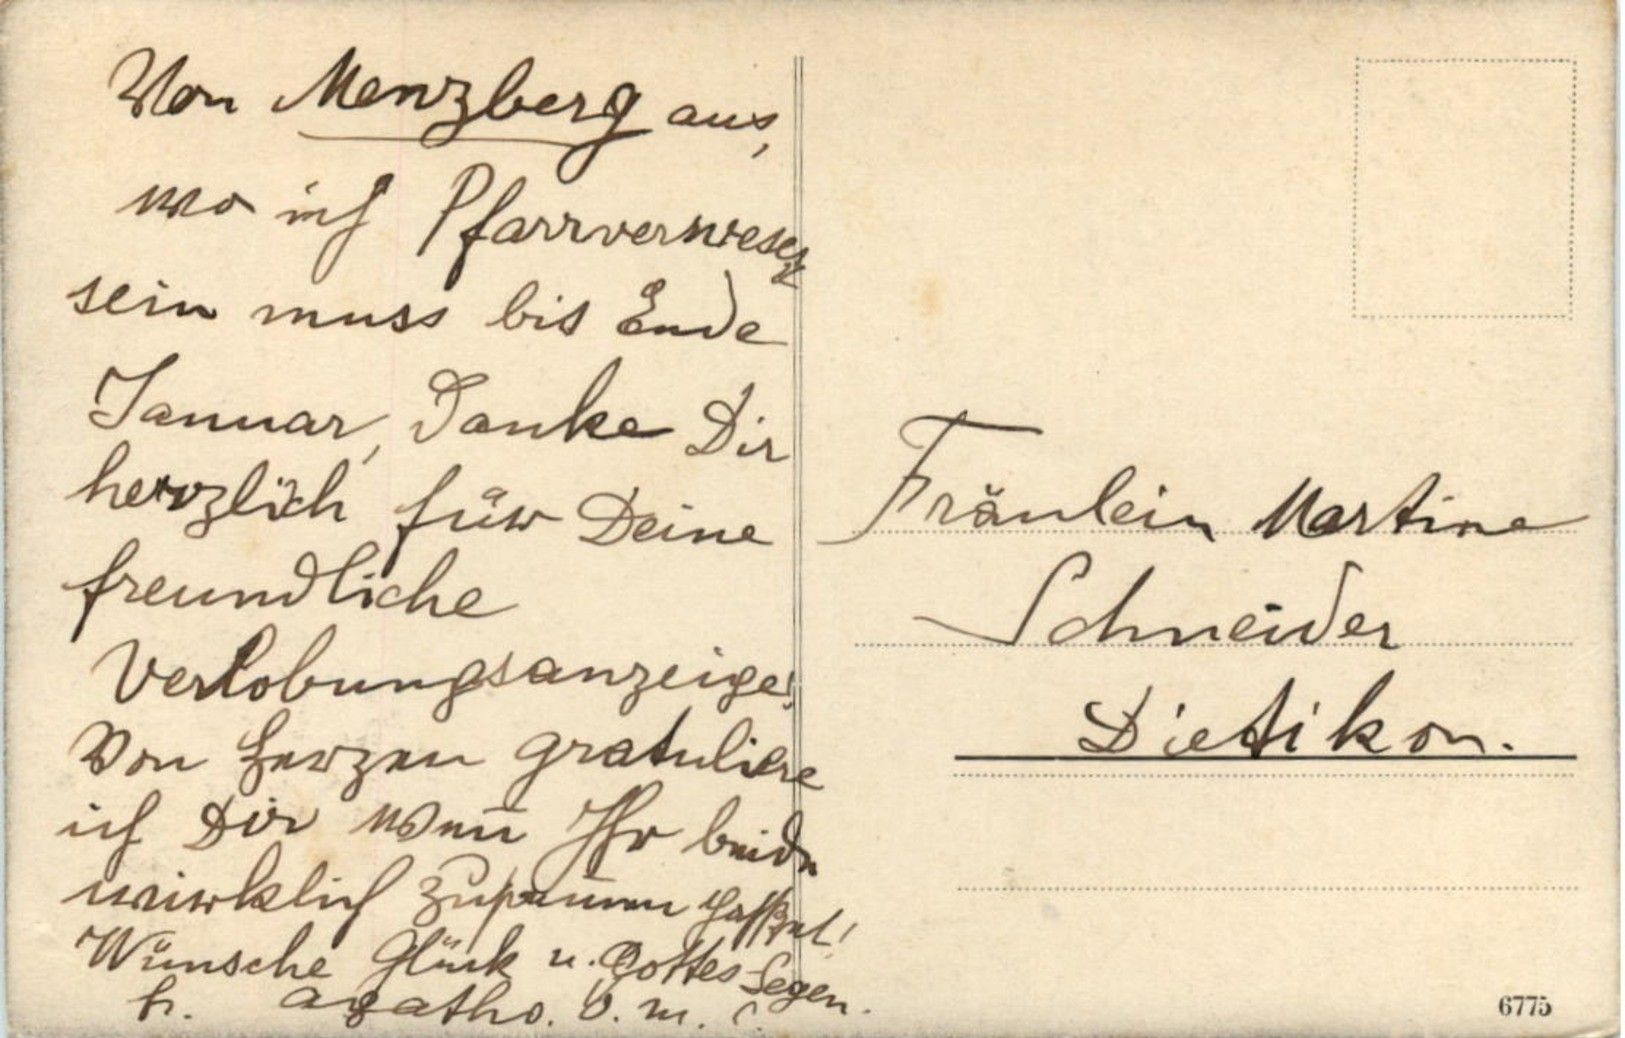 Von Menzberg aus,
wo ich Pfarrverweser
sein muss bis Ende
Januar, Danke Dir
herzlich für Deine
freundliche
Verlobungsanzeige,
Von Herzen gratuliere
ich Dir wenn Ihr beide
wirklich zusammen passet!
Wünsche Glück u. Gottes Segen.
P. Agatho. O. m. C.
Fräulein Martine
Schneider
Dietikon.
6775